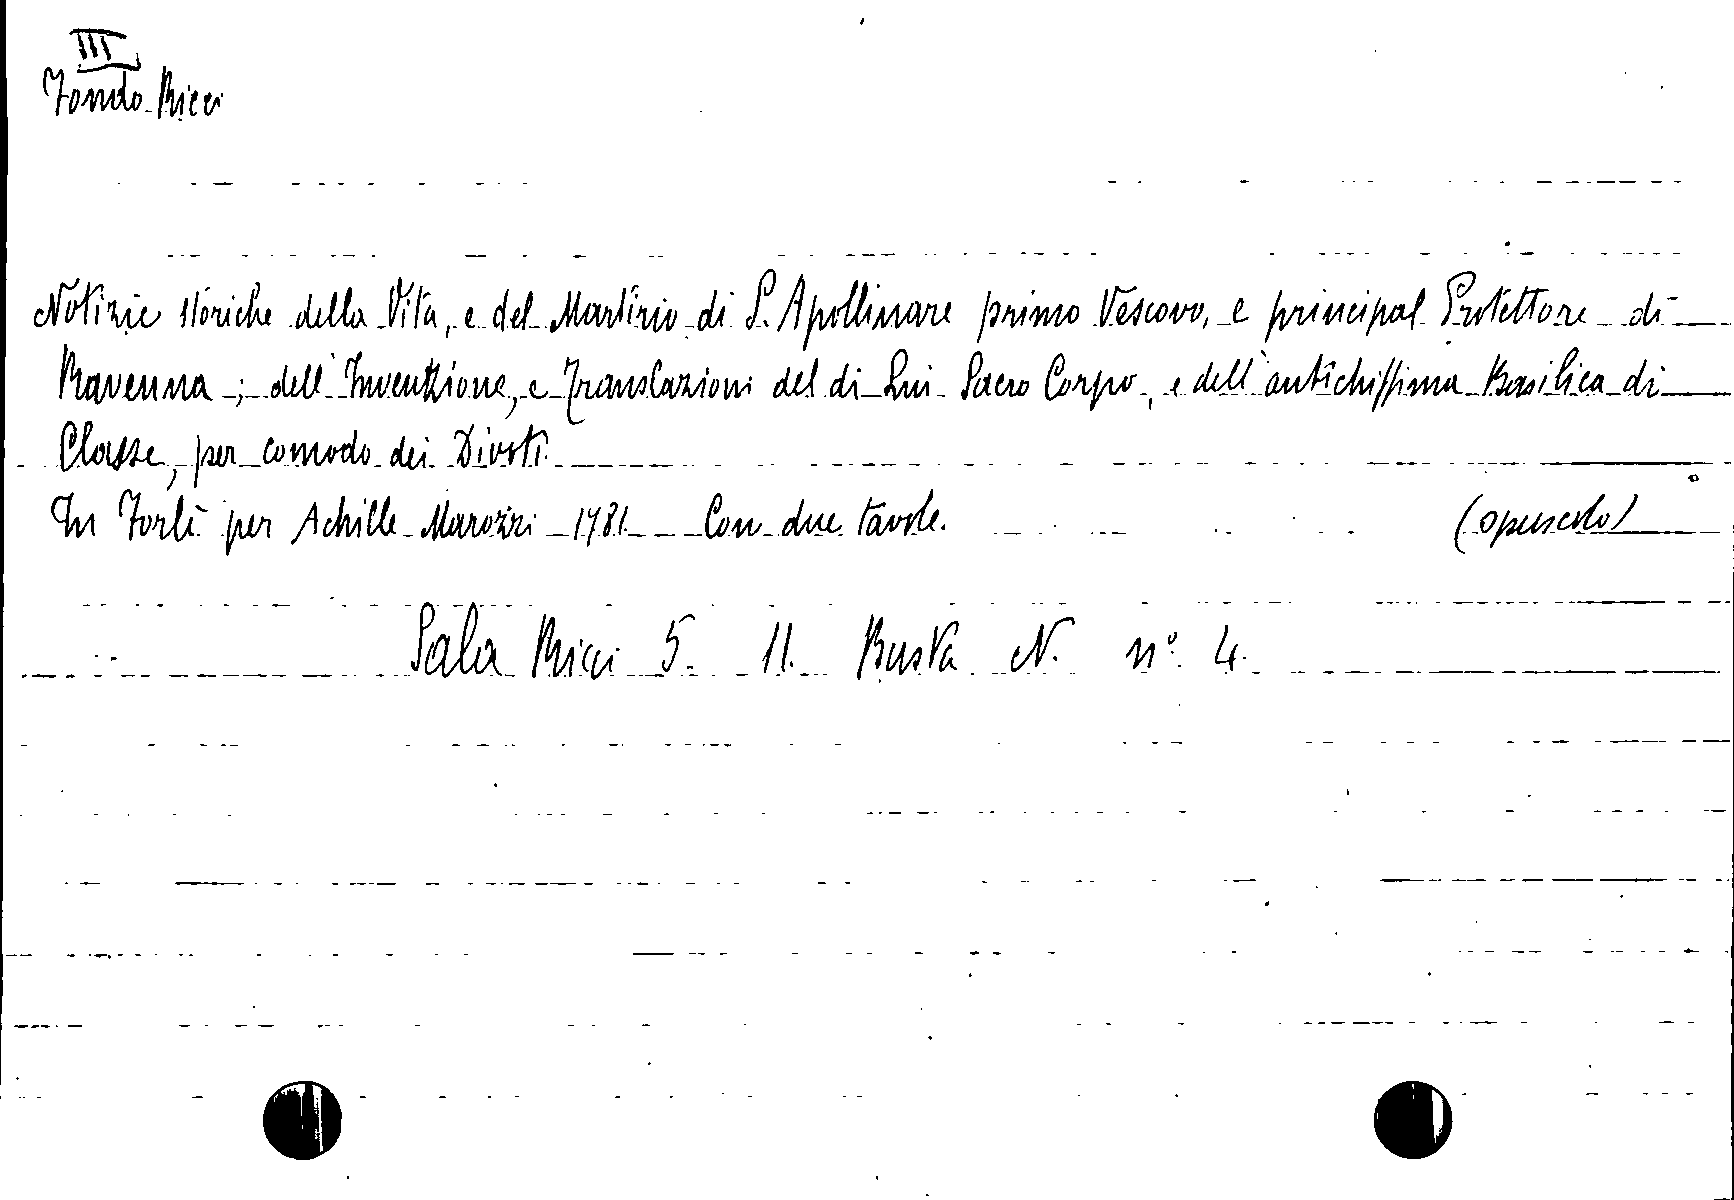 III
Fondo Ricci
Notizie storiche della Vita, e del Martirio di S. Apollinare primo Vescovo, e principal Protettore di
Ravenna; dell'Inventzione, e Translazioni del di Lui Sacro Corpo, e dell'antichissima Basilica di
Classe, per comodo dei Divoti.
In Forlì per Achille Marozzi 1781. Con due tavole. (opuscolo)
Sala Ricci 5. 11. Busta N. n° 4.